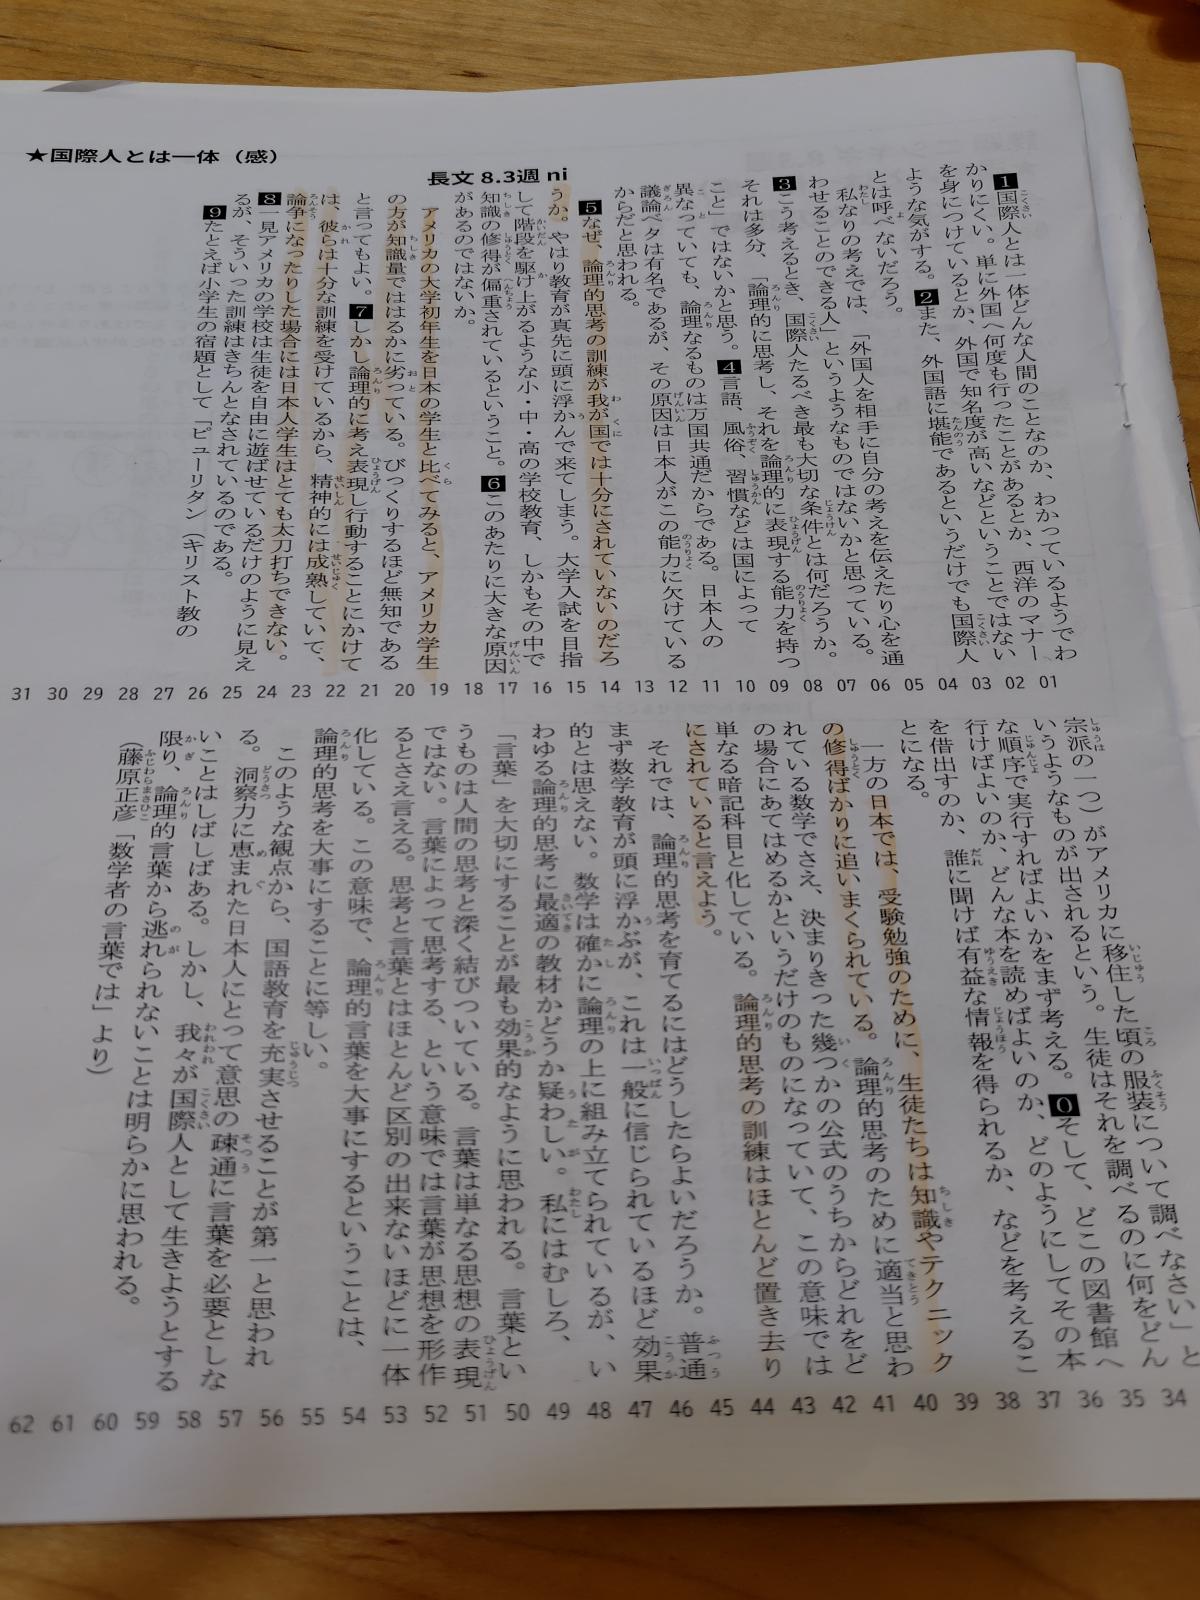 ★国際人とは一体（感）
長文 8.3週 ni
1国際人とは一体どんな人間のことなのか、わかっているようでわ
かりにくい。単に外国へ何度も行ったことがあるとか、西洋のマナー
を身につけているとか、外国で知名度が高いなどということではない
ような気がする。2また、外国語に堪能であるというだけでも国際人
とは呼べないだろう。
私なりの考えでは、「外国人を相手に自分の考えを伝えたり心を通
わせることのできる人」というようなものではないかと思っている。
3こう考えるとき、国際人たるべき最も大切な条件とは何だろうか。
それは多分、「論理的に思考し、それを論理的に表現する能力を持つ
こと」ではないかと思う。4言語、風俗、習慣などは国によって
異なっていても、論理なるものは万国共通だからである。日本人の
議論ベタは有名であるが、その原因は日本人がこの能力に欠けている
からだと思われる。
5なぜ、論理的思考の訓練が我が国では十分にされていないのだろ
うか。やはり教育が真先に頭に浮かんで来てしまう。大学入試を目指
して階段を駆け上がるような小・中・高の学校教育、しかもその中で
知識の修得が偏重されているということ。6このあたりに大きな原因
があるのではないか。
アメリカの大学初年生を日本の学生と比べてみると、アメリカ学生
の方が知識量でははるかに劣っている。びっくりするほど無知である
と言ってもよい。7しかし論理的に考え表現し行動することにかけて
は、彼らは十分な訓練を受けているから、精神的には成熟していて、
論争になったりした場合には日本人学生はとても太刀打ちできない。
8一見アメリカの学校は生徒を自由に遊ばせているだけのように見え
るが、そういった訓練はきちんとなされているのである。
9たとえば小学生の宿題として「ピューリタン（キリスト教の
31 30 29 28 27 26 25 24 23 22 21 20 19 18 17 16 15 14 13 12 11 10 09 08 07 06 05 04 03 02 01
宗派の一つ）がアメリカに移住した頃の服装について調べなさい」と
いうようなものが出されるという。生徒はそれを調べるのに何をどん
な順序で実行すればよいかをまず考える。0そして、どこの図書館へ
行けばよいのか、どんな本を読めばよいのか、どのようにしてその本
を借出すのか、誰に聞けば有益な情報を得られるか、などを考えるこ
とになる。
一方の日本では、受験勉強のために、生徒たちは知識やテクニック
の修得ばかりに追いまくられている。論理的思考のために適当と思わ
れている数学でさえ、決まりきった幾つかの公式のうちからどれをど
の場合にあてはめるかというだけのものになっていて、この意味では
単なる暗記科目と化している。論理的思考の訓練はほとんど置き去り
にされていると言えよう。
それでは、論理的思考を育てるにはどうしたらよいだろうか。普通
まず数学教育が頭に浮かぶが、これは一般に信じられているほど効果
的とは思えない。数学は確かに論理の上に組み立てられているが、い
わゆる論理的思考に最適の教材かどうか疑わしい。私にはむしろ、
「言葉」を大切にすることが最も効果的なように思われる。言葉とい
うものは人間の思考と深く結びついている。言葉は単なる思想の表現
ではない。言葉によって思考する、という意味では言葉が思想を形作
るとさえ言える。思考と言葉とはほとんど区別の出来ないほどに一体
化している。この意味で、論理的言葉を大事にするということは、
論理的思考を大事にすることに等しい。
このような観点から、国語教育を充実させることが第一と思われ
る。洞察力に恵まれた日本人にとって意思の疎通に言葉を必要としな
いことはしばしばある。しかし、我々が国際人として生きようとする
限り、論理的言葉から逃れられないことは明らかに思われる。
（藤原正彦「数学者の言葉では」より）
62 61 60 59 58 57 56 55 54 53 52 51 50 49 48 47 46 45 44 43 42 41 40 39 38 37 36 35 34